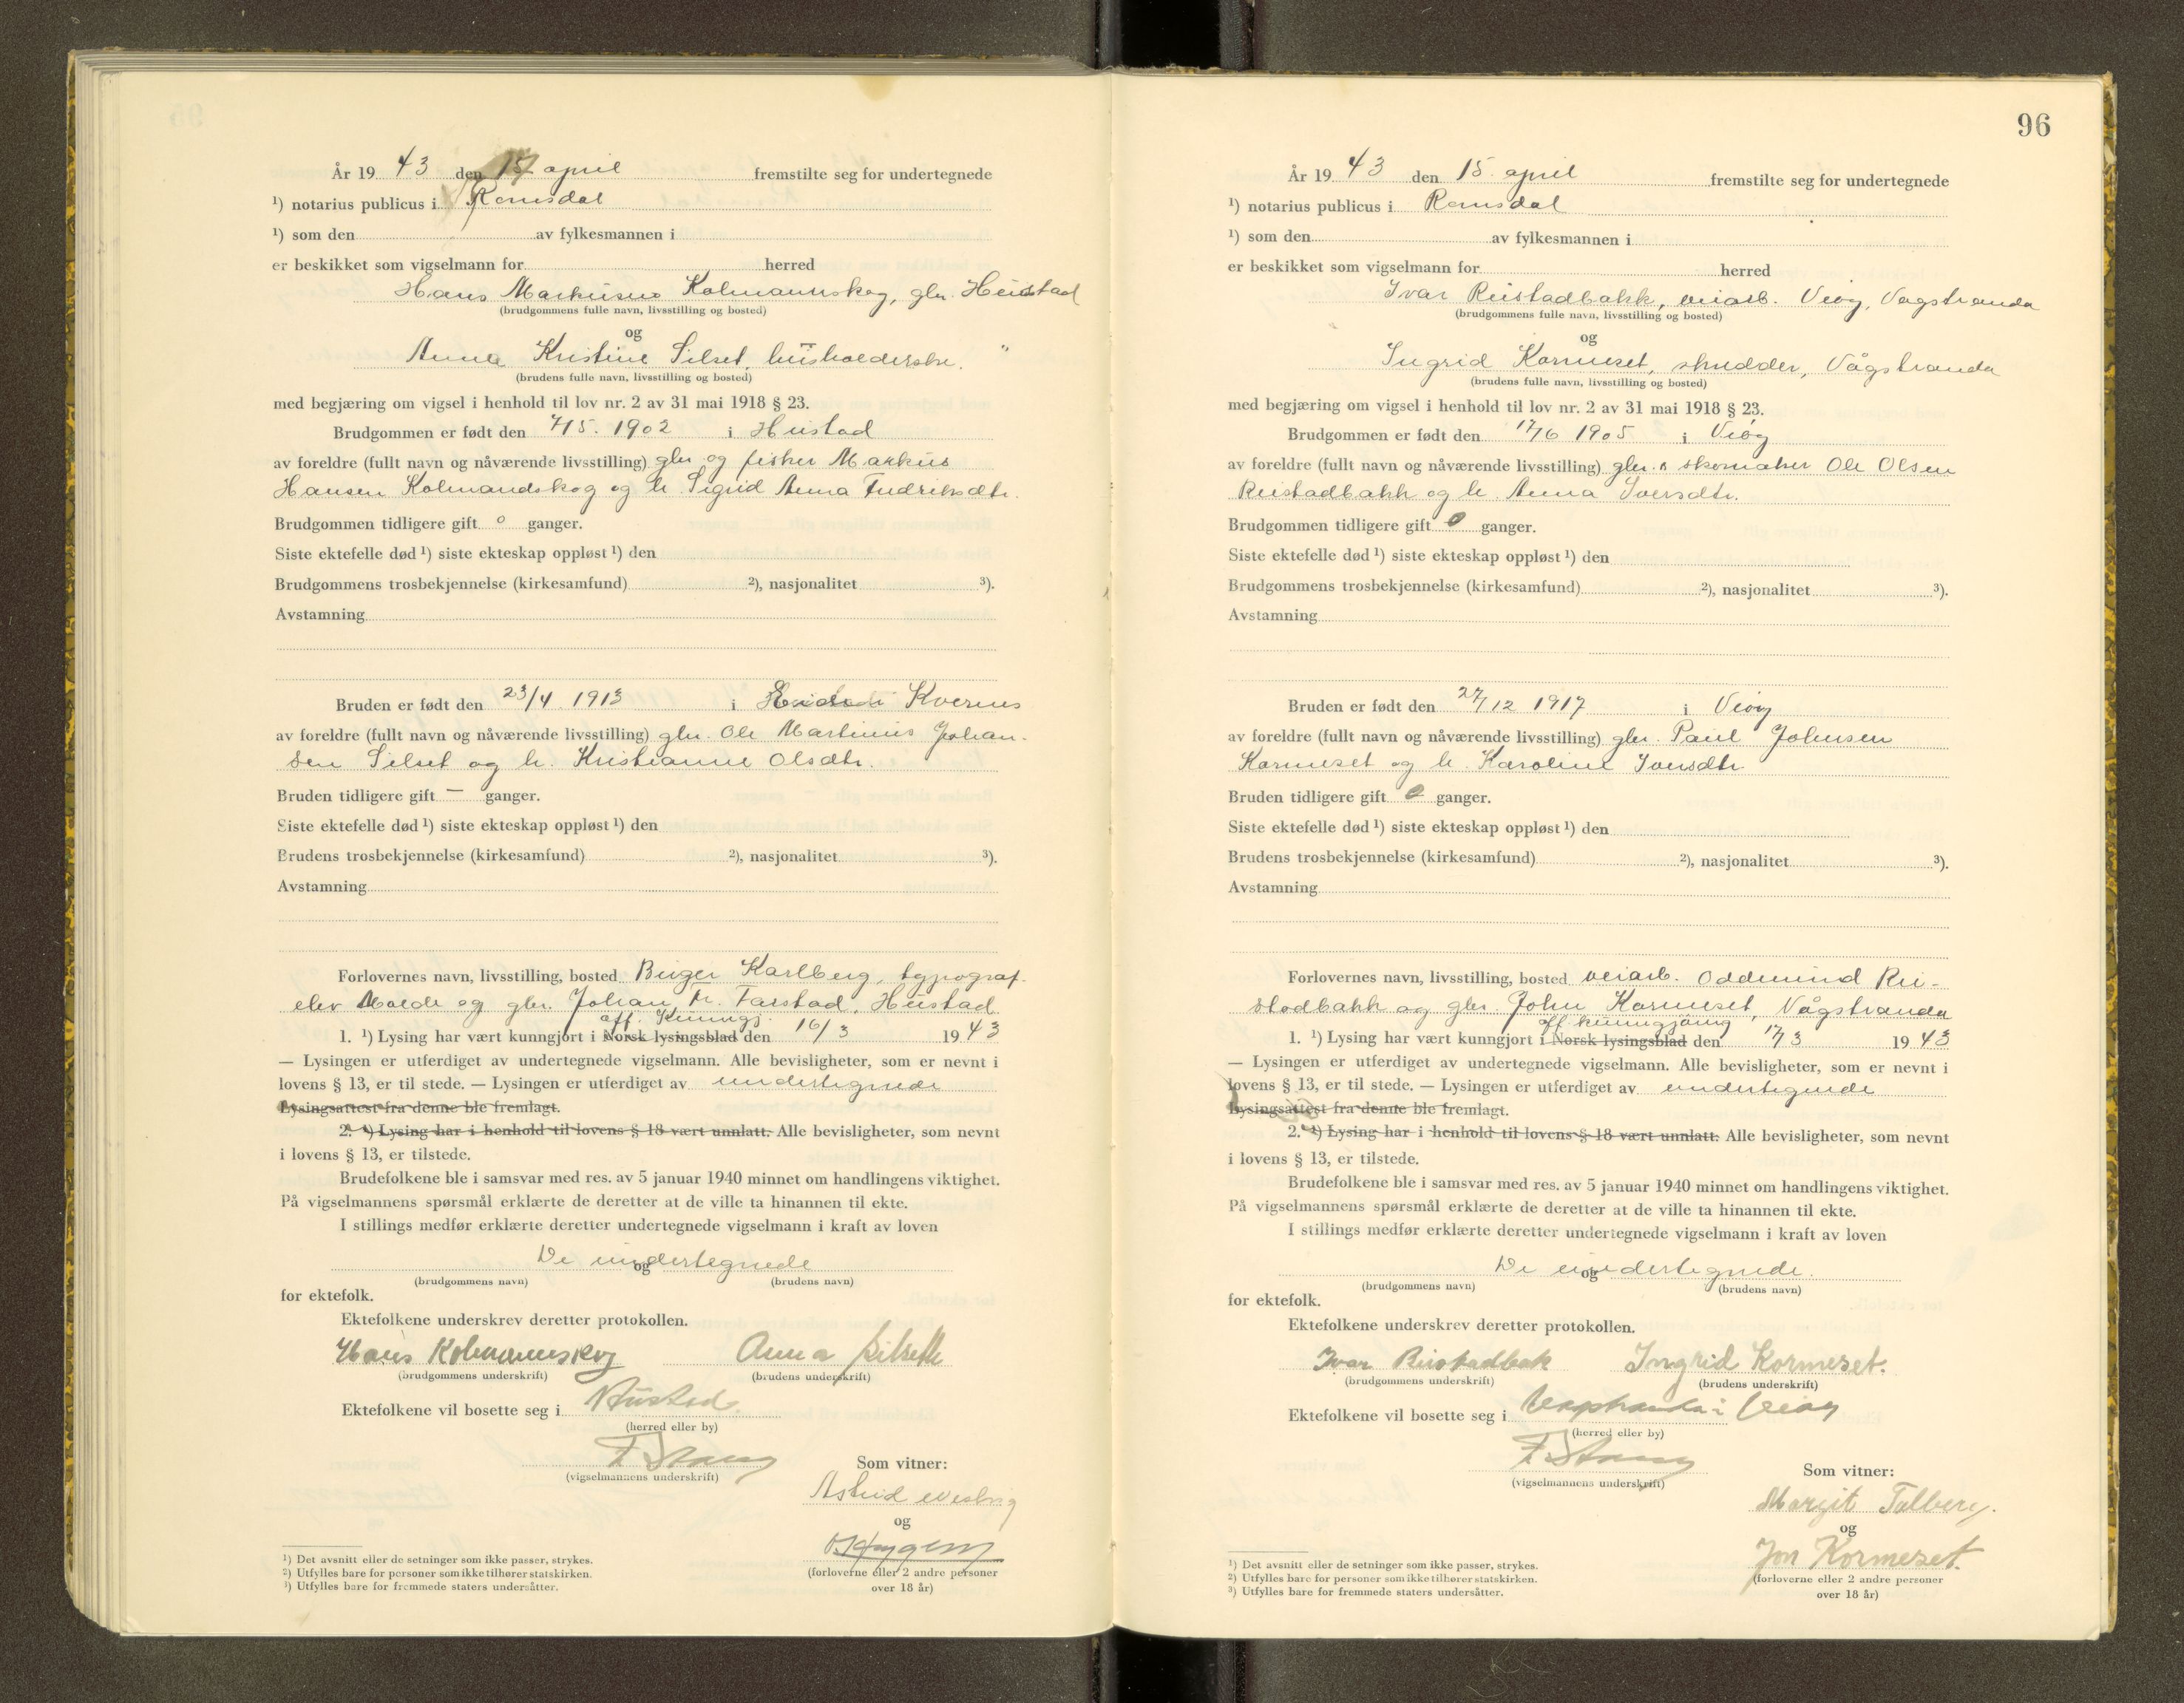 År 19 43 den 15 april fremstilte seg for undertegnede
¹) notarius publicus i Romsdal
¹) som den av fylkesmannen i
er beskikket som vigselmann for herred
Hans Markusen Kolmannskog, gbr. Hustad
(brudgommens fulle navn, livsstilling og bosted)
og
Anna Kristine Silset, husholderske. "
(brudens fulle navn, livsstilling og bosted)
med begjæring om vigsel i henhold til lov nr. 2 av 31 mai 1918 § 23.
Brudgommen er født den 7/5. 1902 i Hustad
av foreldre (fullt navn og nåværende livsstilling) gbr og fisker Markus
Hansen Kolmandskog og h. Sigrid Anna Fredriksdtr.
Brudgommen tidligere gift 0 ganger.
Siste ektefelle død ¹) siste ekteskap oppløst ¹) den
Brudgommens trosbekjennelse (kirkesamfund) ²), nasjonalitet ³).
Avstamning
Bruden er født den 23/4 1913 i Kvernes
av foreldre (fullt navn og nåværende livsstilling) gbr. Ole Martinus Johan-
sen Silset og h. Kristianne Olsdtr.
Bruden tidligere gift – ganger.
Siste ektefelle død ¹) siste ekteskap oppløst ¹) den
Brudens trosbekjennelse (kirkesamfund) ²), nasjonalitet ³).
Avstamning
Forlovernes navn, livsstilling, bosted Birger Karlberg, typograf-
elev Molde og gbr. Johan Fr. Farstad, Hustad
off. Kunngj.
1. ¹) Lysing har vært kunngjort i Norsk lysingsblad den 16/3 19 43
— Lysingen er utferdiget av undertegnede vigselmann. Alle bevisligheter, som er nevnt i
lovens § 13, er til stede. — Lysingen er utferdiget av undertegnede
Lysingsattest fra denne ble fremlagt.
2. ¹) Lysing har i henhold til lovens § 18 vært unnlatt. Alle bevisligheter, som nevnt
i lovens § 13, er tilstede.
Brudefolkene ble i samsvar med res. av 5 januar 1940 minnet om handlingens viktighet.
På vigselmannens spørsmål erklærte de deretter at de ville ta hinannen til ekte.
I stillings medfør erklærte deretter undertegnede vigselmann i kraft av loven
De undertegnede
og
(brudgommens navn) (brudens navn)
for ektefolk.
Ektefolkene underskrev deretter protokollen.
Hans Kolmannskog Anna Silseth
(brudgommens underskrift) (brudens underskrift)
Ektefolkene vil bosette seg i Hustad.
(herred eller by)
F Stang
(vigselmannens underskrift) Som vitner:
Astrid
og
(forloverne eller 2 andre personer
over 18 år)
¹) Det avsnitt eller de setninger som ikke passer, strykes.
²) Utfylles bare for personer som ikke tilhører statskirken.
³) Utfylles bare for fremmede staters undersåtter.
96
År 19 43 den 15. april fremstilte seg for undertegnede
¹) notarius publicus i Romsdal
¹) som den av fylkesmannen i
er beskikket som vigselmann for herred
Ivar Reistadbakk, veiarb. Veøy, Vågstranda
(brudgommens fulle navn, livsstilling og bosted)
og
Ingrid Kormeset, skredder, Vågstranda
(brudens fulle navn, livsstilling og bosted)
med begjæring om vigsel i henhold til lov nr. 2 av 31 mai 1918 § 23.
Brudgommen er født den 17/6 1905 i Veøy
av foreldre (fullt navn og nåværende livsstilling) gbr. & skomaker Ole Olsen
Reistadbakk og h. Anna Iversdtr.
Brudgommen tidligere gift 0 ganger.
Siste ektefelle død ¹) siste ekteskap oppløst ¹) den
Brudgommens trosbekjennelse (kirkesamfund) ²), nasjonalitet ³).
Avstamning
Bruden er født den 27/12 1917 i Veøy
av foreldre (fullt navn og nåværende livsstilling) gbr. Paul Johnsen
Kormeset og h. Karoline Iversdtr
Bruden tidligere gift 0 ganger.
Siste ektefelle død ¹) siste ekteskap oppløst ¹) den
Brudens trosbekjennelse (kirkesamfund) ²), nasjonalitet ³).
Avstamning
Forlovernes navn, livsstilling, bosted veiarb. Oddmund Rei-
stadbakk og gbr. John Kormeset, Vågstranda
off kunngjøring
1. ¹) Lysing har vært kunngjort i Norsk lysingsblad den 17/3 19 43
— Lysingen er utferdiget av undertegnede vigselmann. Alle bevisligheter, som er nevnt i
lovens § 13, er til stede. — Lysingen er utferdiget av undertegnede
Lysingsattest fra denne ble fremlagt.
2. ¹) Lysing har i henhold til lovens § 18 vært unnlatt. Alle bevisligheter, som nevnt
i lovens § 13, er tilstede.
Brudefolkene ble i samsvar med res. av 5 januar 1940 minnet om handlingens viktighet.
På vigselmannens spørsmål erklærte de deretter at de ville ta hinannen til ekte.
I stillings medfør erklærte deretter undertegnede vigselmann i kraft av loven
De undertegnede.
og
(brudgommens navn) (brudens navn)
for ektefolk.
Ektefolkene underskrev deretter protokollen.
Ivar Reistadbak Ingrid Kormeset.
(brudgommens underskrift) (brudens underskrift)
Ektefolkene vil bosette seg i Vågstranda i Veøy
(herred eller by)
F Stang
(vigselmannens underskrift) Som vitner:
Margit Talberg.
og
Jon Kormeset.
(forloverne eller 2 andre personer
over 18 år)
¹) Det avsnitt eller de setninger som ikke passer, strykes.
²) Utfylles bare for personer som ikke tilhører statskirken.
³) Utfylles bare for fremmede staters undersåtter.